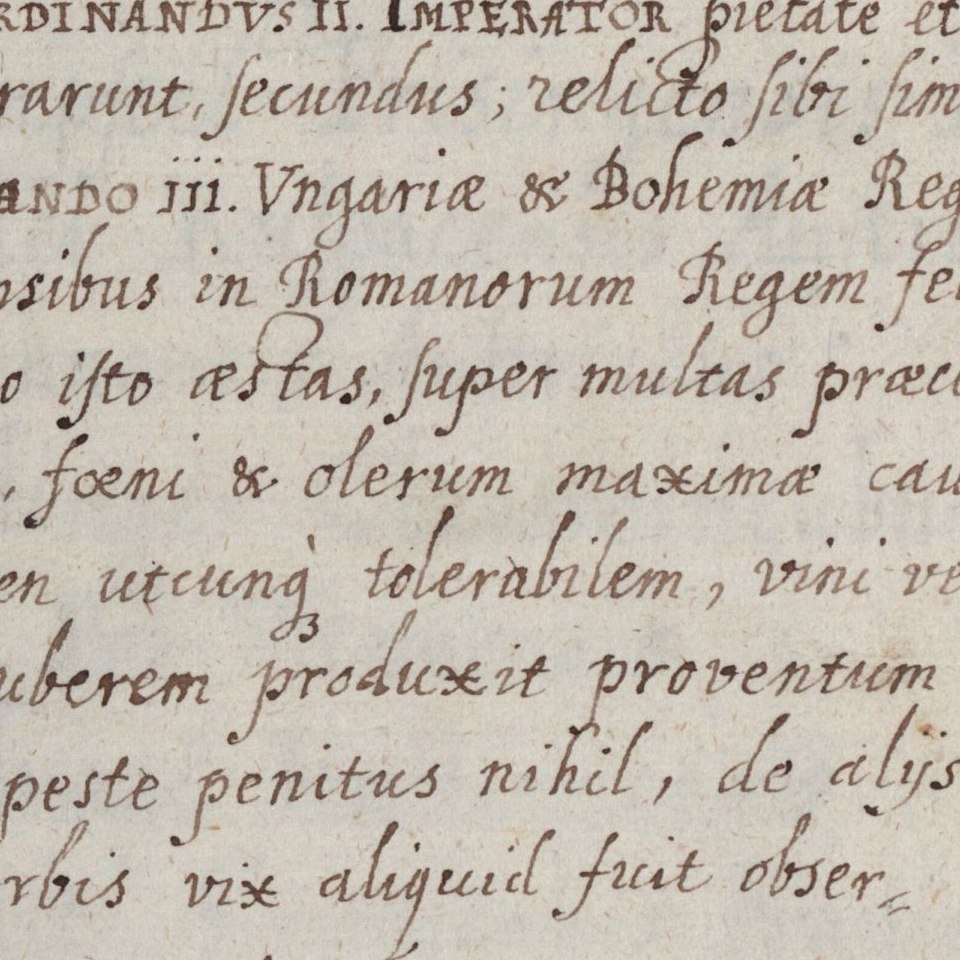 RDINANDVS II. IMPERATOR pietate et
rarunt, ſecundus; relicto ſibi ſim
ANDO III. Vngariæ & Bohemiæ Reg
nsibus in Romanorum Regem fel
o iſto æstas, ſuper multas præce
, fœni & olerum maximæ cau
en utcunq̀ꝫ tolerabilem, vini ve
uberem produxit proventum
peste penitus nihil, de alijs
rbis vix aliquid fuit obser=